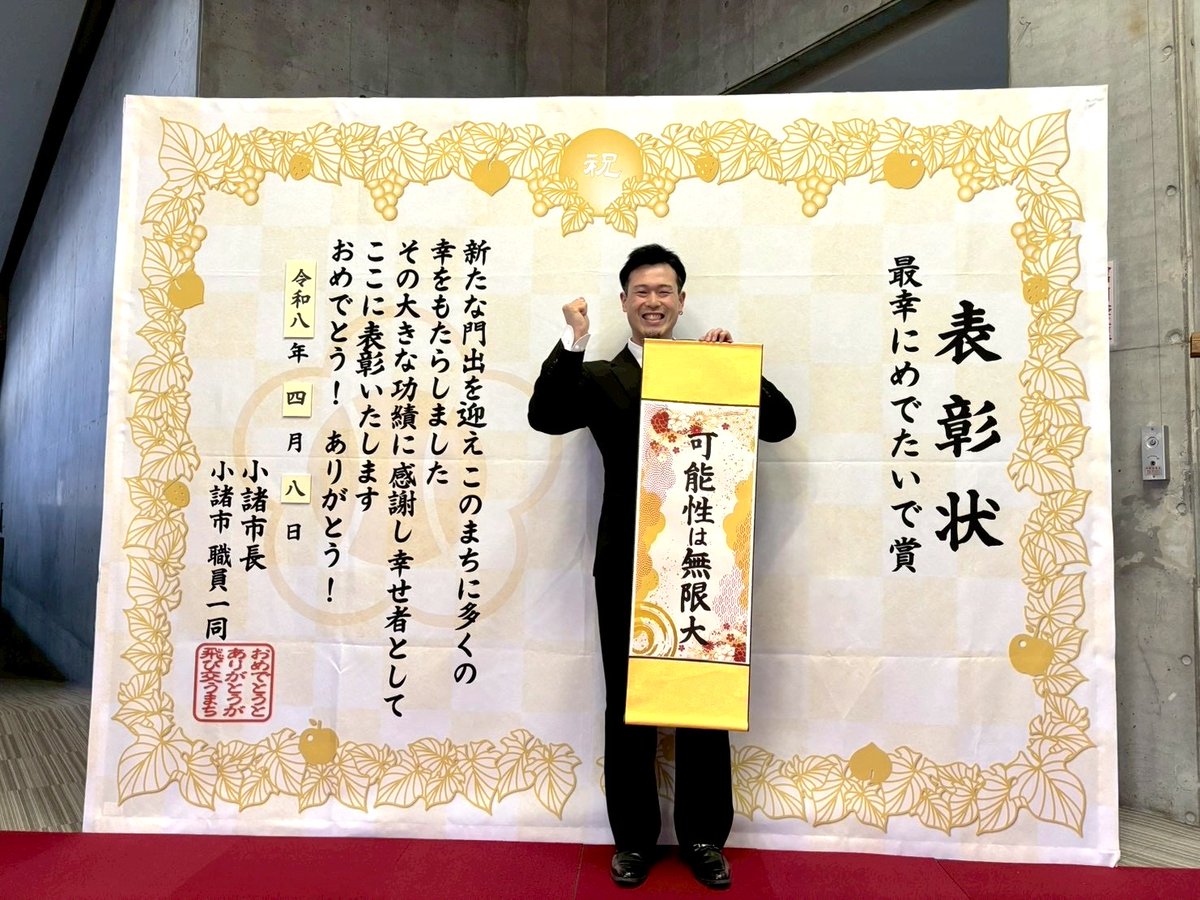 祝
表彰状
最幸にめでたいで賞
新たな門出を迎え このまちに多くの
幸をもたらしました
その大きな功績に感謝し 幸せ者として
ここに表彰いたします
おめでとう! ありがとう!
令和八年 四月 八日
小諸市長
小諸市 職員一同
おめでとうと
ありがとうが
飛び交うまち
可能性は無限大